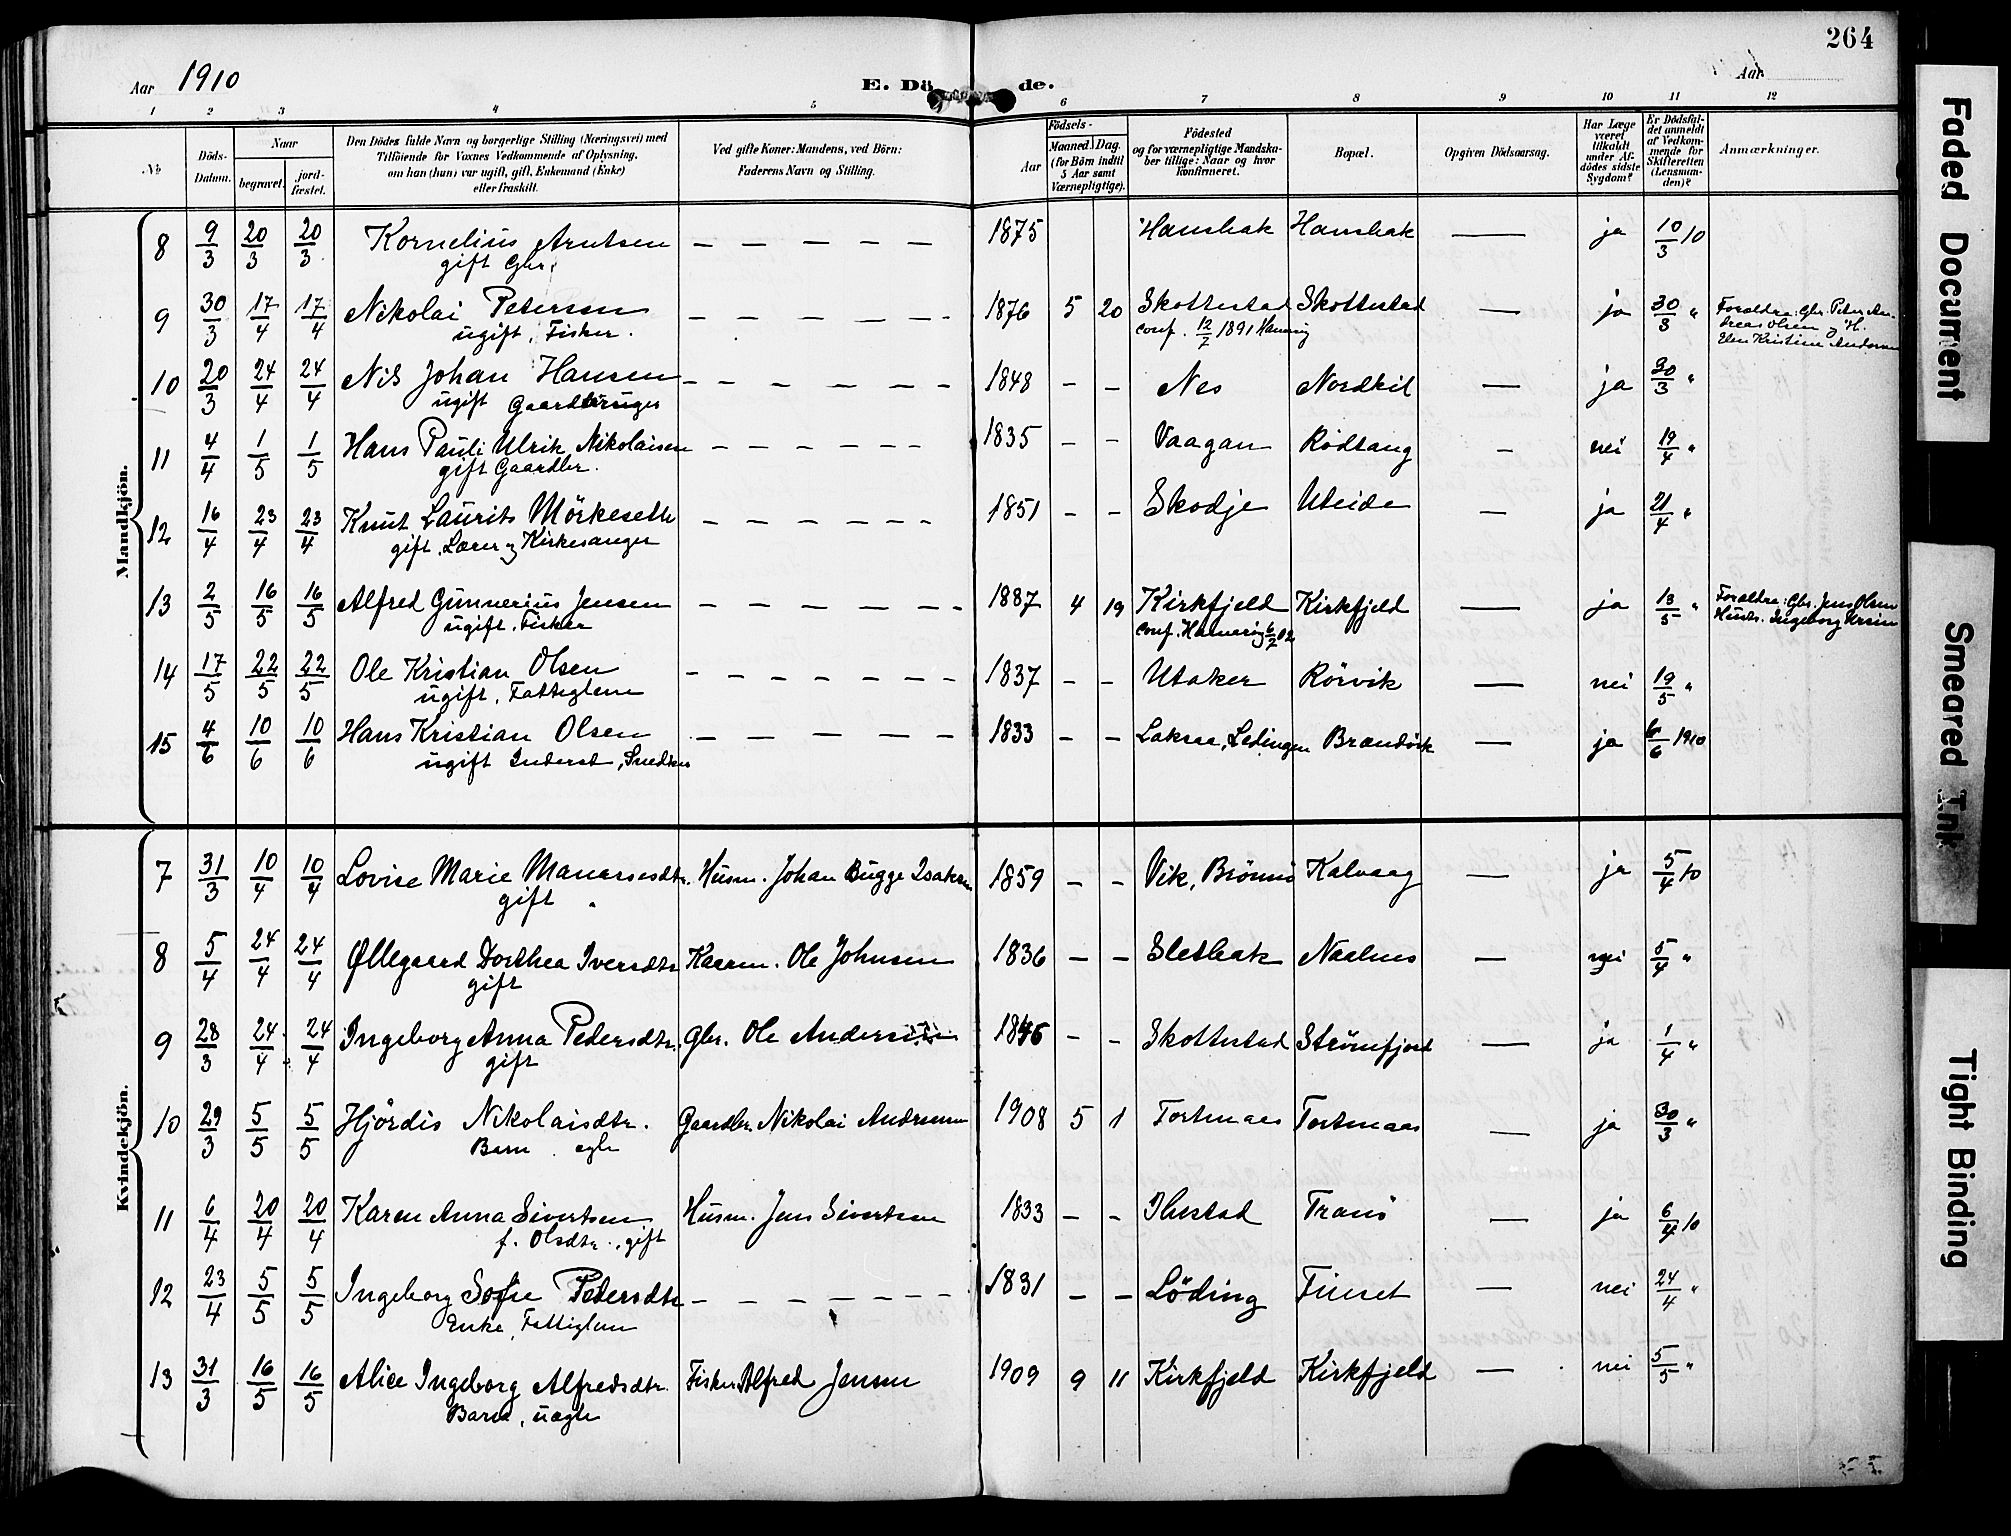 264
Aar 1910
E. Dö de.
Aar
1 2 3 4 5 6 7 8 9 10 11 12
No
Döds-Datum.
Naar
begravet.
jord-fæstet.
Den Dödes fulde Navn og borgerlige Stilling (Næringsvei) med
Tilföiende for Voxnes Vedkommende af Oplysning,
om han (hun) var ugift, gift, Enkemand (Enke)
eller fraskilt.
Ved gifte Koner: Mandens, ved Börn:
Faderens Navn og Stilling.
Födsels-
Aar
Maaned Dag.
(for Börn indtil
5 Aar samt
Værnepligtige).
Födested
og for værnepligtige Mandska-
ber tillige: Naar og hvor
konfirmeret.
Bopæl.
Opgiven Dödsaarsag.
Har Læge
været
tilkaldt
under Af-
dödes sidste
Sygdom?
Er Dödsfal-
det anmeldt
af Vedkom-
mende for
Skifteretten
(Lensman-
den)?
Anmærkninger.
Mandkjön.
8 9/3 20/3 20/3 Kornelius Arntsen — — — — — — 1875 Hamsbak Hamsbak — ja 10/3 10
gift Gbr.
9 30/3 17/4 17/4 Nikolai Petersen — — — — — — 1876 5 20 Skottestad Skottestad — ja 30/3 "
ugift, Fisker.
conf. 12/7 1891 Hamarög
Foraldre: Gbr. Peter An-
dreas Olsen og H.
Elen Kristine Andersen
10 20/3 24/4 24/4 Nils Johan Hansen — — — — — — — 1848 – – Nes Nordkil — ja 30/3 "
ugift Gaardbruger
11 4/4 1/5 1/5 Hans Pauli Ulrik Nikolaisen — — — — — — 1835 – – Vaagan Rödtang – nei 19/4 "
gift Gaardbr.
12 16/4 23/4 23/4 Knut Laurits Mörkeseth — — — — — — 1851 – – Skodje Uteide – ja 21/4 "
gift, Lærer og Kirkesanger
13 2/5 16/5 16/5 Alfred Gunnerius Jensen — — — — — — 1887 4 19 Kirkfjeld Kirkfjeld — ja 13/5 "
ugift, Fisker
conf. Hamarög 6/7 02
Foraldre: Gbr. Jens Olsen
Hustr. Ingeborg Ursin
14 17/5 22/5 22/5 Ole Kristian Olsen — — — — — — — 1837 – – Utaker Rörvik — nei 19/5 "
ugift, Fattiglem
15 4/6 10/6 10/6 Hans Kristian Olsen — — — — — — 1833 – – Laksaa, Lödingen Brandörk — ja 6/6 1910
ugift Inderst, Snedker
Kvindekjön.
7 31/3 10/4 10/4 Lovise Marie Manassesdtr. Husm. Johan Bugge Isaksen 1859 – – Vik, Brönnö Kalvaag — ja 5/4 10
gift
8 5/4 24/4 24/4 Øllegaard Dorthea Iversdtr Kaarm. Ole Johnsen 1836 – – Sletbak Naalnes – nei 5/4 "
gift
9 28/3 24/4 24/4 Ingeborg Anna Pedersdtr. Gbr. Ole Andersen 1846 – – Skottestad Strömfjord — ja 1/4 "
gift
10 29/3 5/5 5/5 Hjördis Nikolaisdtr. Gaardbr. Nikolai Andersen 1908 5 1 Tortenaas Tortenaas — ja 30/3 "
Barn, egte
11 6/4 20/4 20/4 Karen Anna Sivertsen Husm. Jens Sivertsen 1833 – – Ihustad Tranö — ja 6/4 10
f. Olsdtr., gift
12 23/4 5/5 5/5 Ingeborg Sofie Pedersdtr — — — — — — 1831 – – Löding Finset — nei 24/4 "
Enke, Fattiglem
13 31/3 16/5 16/5 Alice Ingeborg Alfredsdtr. Fisker Alfred Jensen 1909 9 11 Kirkfjeld Kirkfjeld — nei 5/5 "
Barn, uægte
Faded Document
Smeared Ink
Tight Binding